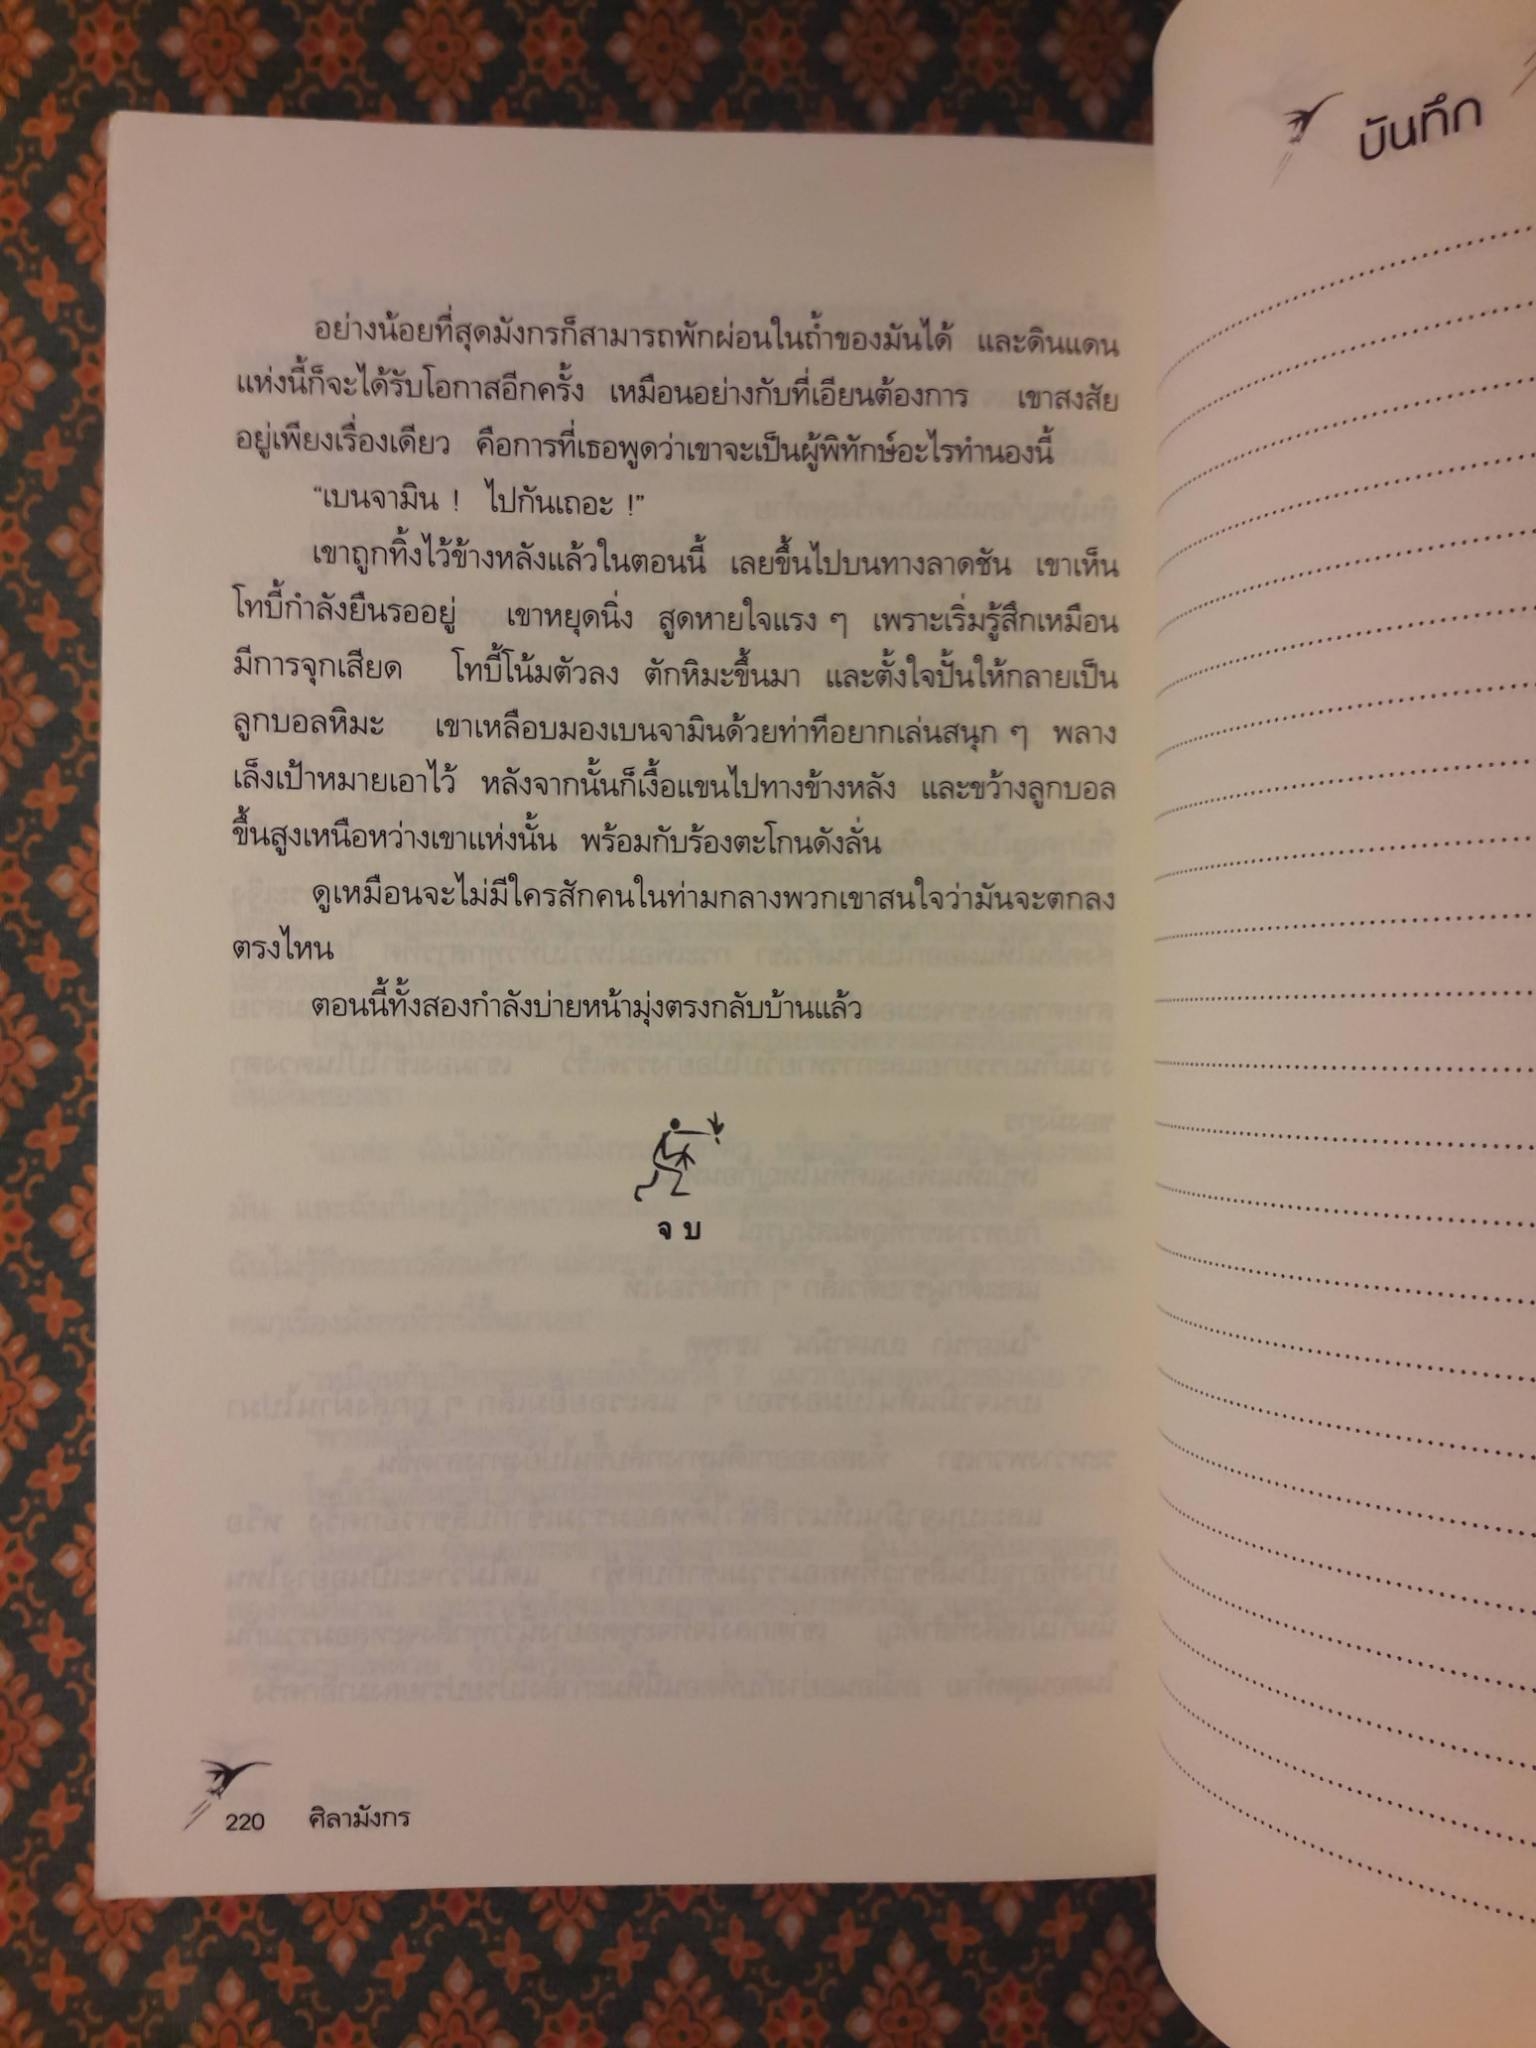 อย่างน้อยที่สุดมังกรก็สามารถพักผ่อนในถ้ำของมันได้ และดินแดน
แห่งนี้ก็จะได้รับโอกาสอีกครั้ง เหมือนอย่างกับที่เอียนต้องการ เขาสงสัย
อยู่เพียงเรื่องเดียว คือการที่เธอพูดว่าเขาจะเป็นผู้พิทักษ์อะไรทำนองนี้
“เบนจามิน ! ไปกันเถอะ !”
เขาถูกทิ้งไว้ข้างหลังแล้วในตอนนี้ เลยขึ้นไปบนทางลาดชัน เขาเห็น
โทบี้กำลังยืนรออยู่ เขาหยุดนิ่ง สูดหายใจแรง ๆ เพราะเริ่มรู้สึกเหมือน
มีการจุกเสียด โทบี้โน้มตัวลง ตักหิมะขึ้นมา และตั้งใจปั้นให้กลายเป็น
ลูกบอลหิมะ เขาเหลือบมองเบนจามินด้วยท่าทีอยากเล่นสนุก ๆ พลาง
เล็งเป้าหมายเอาไว้ หลังจากนั้นก็เงื้อแขนไปทางข้างหลัง และขว้างลูกบอล
ขึ้นสูงเหนือหว่างเขาแห่งนั้น พร้อมกับร้องตะโกนดังลั่น
ดูเหมือนจะไม่มีใครสักคนในท่ามกลางพวกเขาสนใจว่ามันจะตกลง
ตรงไหน
ตอนนี้ทั้งสองกำลังบ่ายหน้ามุ่งตรงกลับบ้านแล้ว
จบ
220 ศิลามังกร
บันทึก